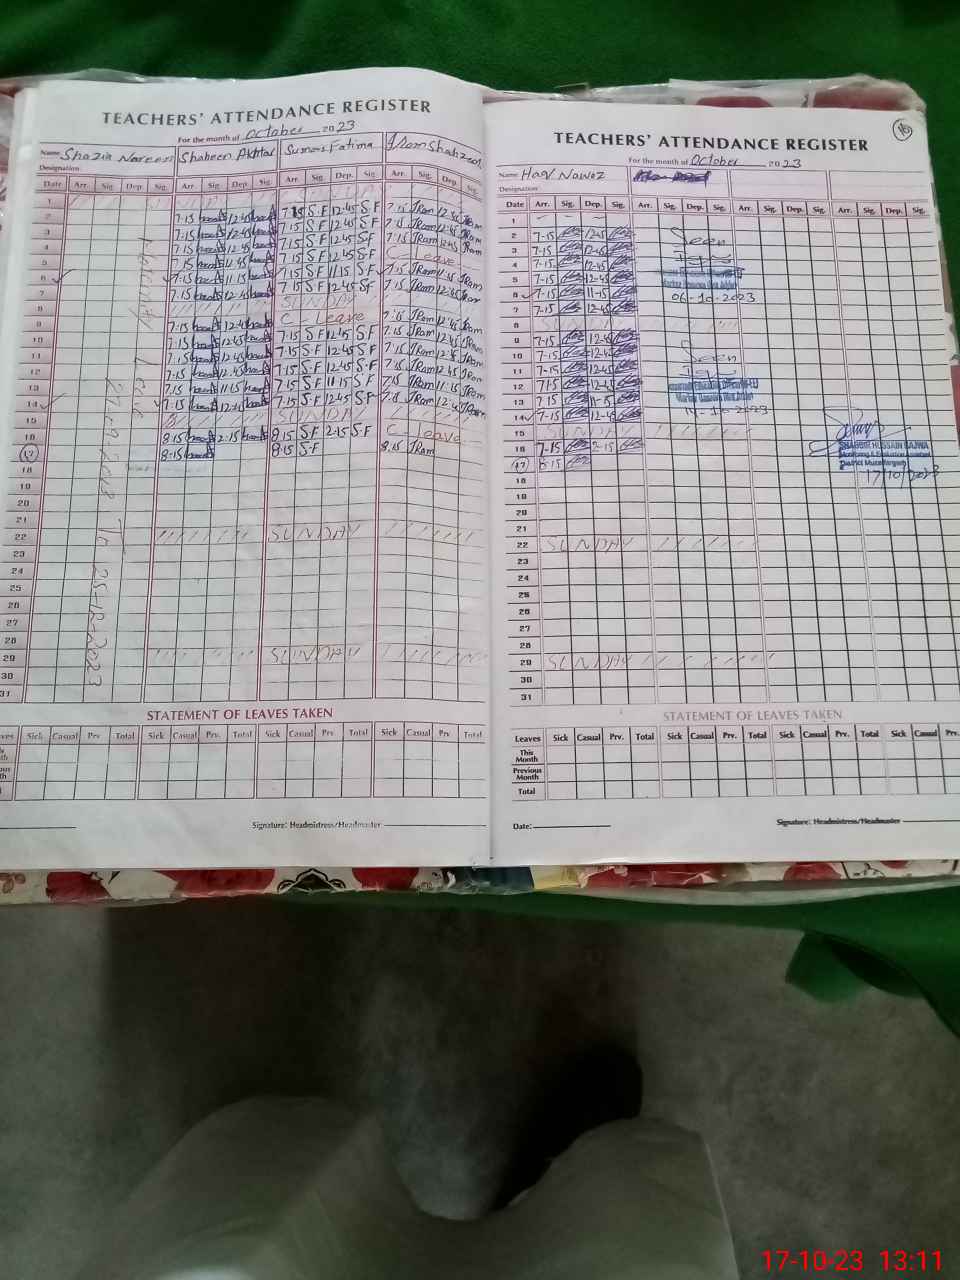 TEACHERS' ATTENDANCE REGISTER
For the month of October 2023
Name Shazia Nareen Shaheen Akhtar Sumera Fatima Iram Shahzadi
Designation:
Date Arr. Sig. Dep. Sig. Arr. Sig. Dep. Sig. Arr. Sig. Dep. Sig. Arr. Sig. Dep. Sig.
1
2 7.15 12.45 7.15 S.F 12.45 S.F 7.15 Iram 12.45 Iram
3 7.15 12.45 7.15 S.F 12.45 S.F 7.15 Iram 12.45 Iram
4 7.15 12.45 7.15 S.F 12.45 S.F 7.15 Iram 12.45 Iram
5 7.15 12.45 7.15 S.F 12.45 S.F C-Leave
6 7.15 11.15 7.15 S.F 11.15 S.F 7.15 Iram 11.15 Iram
7 7.15 12.45 7.15 S.F 12.45 S.F 7.15 Iram 12.45 Iram
8 SUNDAY
9 7.15 12.45 C-Leave 7.15 Iram 12.45 Iram
10 7.15 12.45 7.15 S.F 12.45 S.F 7.15 Iram 12.45 Iram
11 7.15 12.45 7.15 S.F 12.45 S.F 7.15 Iram 12.45 Iram
12 7.15 12.45 7.15 S.F 12.45 S.F 7.15 Iram 12.45 Iram
13 7.15 11.15 7.15 S.F 11.15 S.F 7.15 Iram 11.15 Iram
14 7.15 12.45 7.15 S.F 12.45 S.F 7.15 Iram 12.45 Iram
15 SUNDAY
16 8.15 2.15 8.15 S.F 2.15 S.F C-Leave
17 8.15 8.15 S.F 8.15 Iram
18
19
20
21
22 SUNDAY
23
24
25
26
27
28
29 SUNDAY
30
31
Leave
To 25-12-2023
STATEMENT OF LEAVES TAKEN
Sick Casual Prv. Total Sick Casual Prv. Total Sick Casual Prv. Total Sick Casual Prv. Total
Signature: Headmistress/Headmaster
16
TEACHERS' ATTENDANCE REGISTER
For the month of October 2023
Name Haq Nawaz
Designation:
Date Arr. Sig. Dep. Sig. Arr. Sig. Dep. Sig. Arr. Sig. Dep. Sig. Arr. Sig. Dep. Sig.
1
2 7-15 12-45
3 7-15 12-45
4 7-15 12-45
5 7-15 12-45
6 7-15 11-15
7 7-15 12-45
8 SUNDAY
9 7-15 12-45
10 7-15 12-45
11 7-15 12-45
12 7-15 12-45
13 7-15 11-15
14 7-15 12-45
15 SUNDAY
16 7-15 2-15
17 8-15
18
19
20
21
22 SUNDAY
23
24
25
26
27
28
29 SUNDAY
30
31
Seen
06-10-2023
Seen
14-10-2023
SHABBIR HUSSAIN BAJWA
Monitoring & Evaluation Assistant
District Muzaffargarh
17/10/2023
STATEMENT OF LEAVES TAKEN
Leaves Sick Casual Prv. Total Sick Casual Prv. Total Sick Casual Prv. Total Sick Casual Prv.
This Month
Previous Month
Total
Date: Signature: Headmistress/Headmaster
17-10-23 13:11